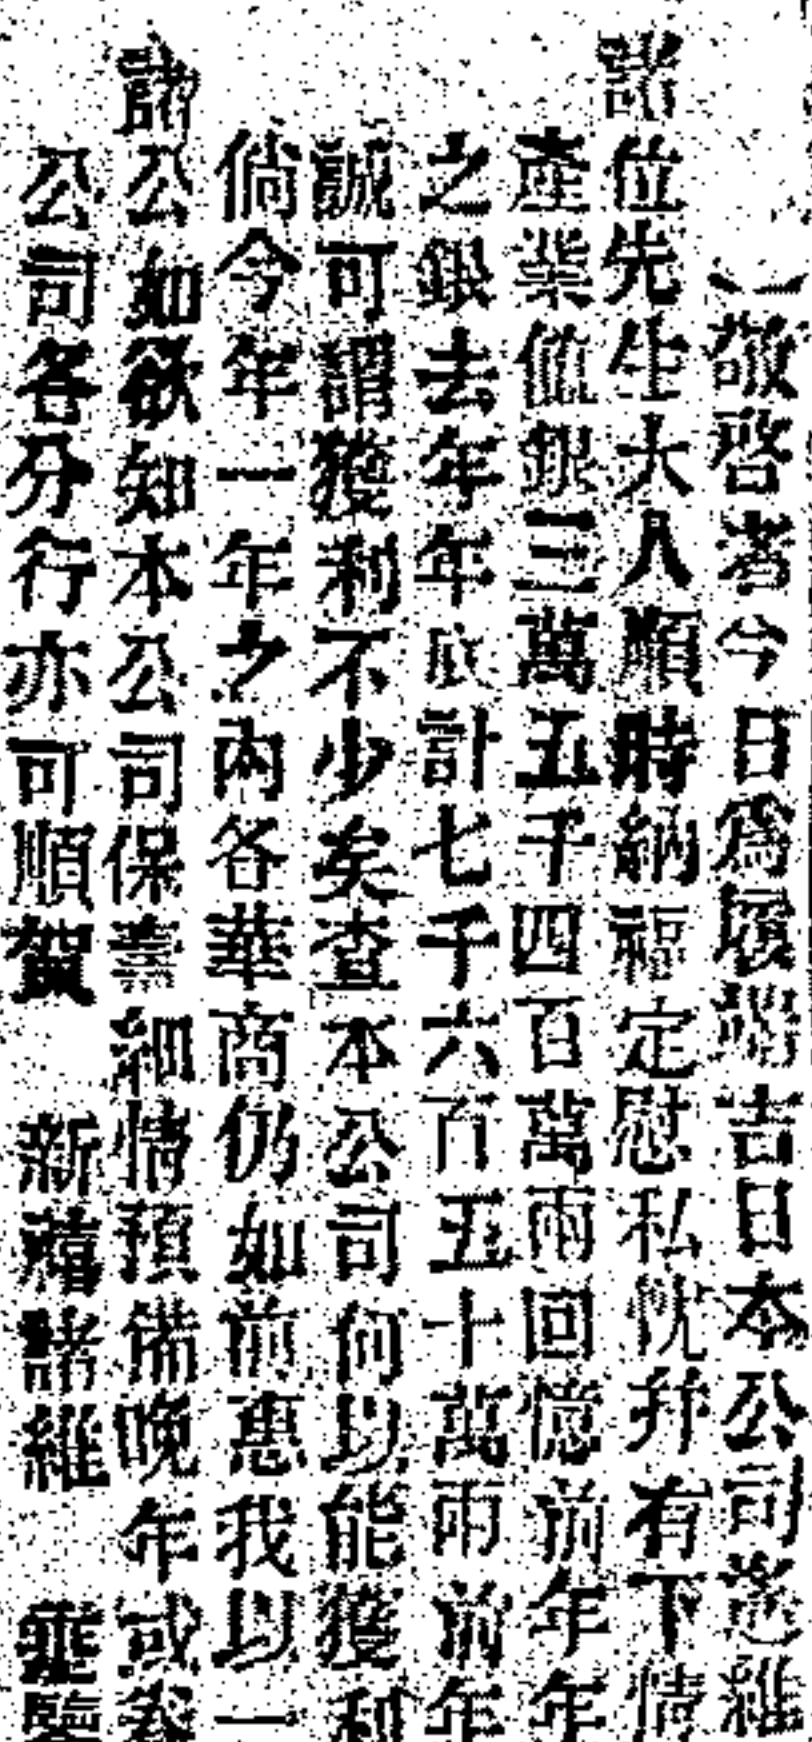 敬啓者今日爲履端吉日本公司恭維
諸位先生大人順時納福定慰私忱幷有下情
產業值銀三萬五千四百萬兩回憶前年年
之銀去年年底計七千六百五十萬兩前年
誠可謂獲利不少矣查本公司何以能獲利
倘今年一年之內各華商仍如前惠我以一
諸公如欲知本公司保壽細情預備晚年或
公司各分行亦可順賀 新禧諸維 垂鑒